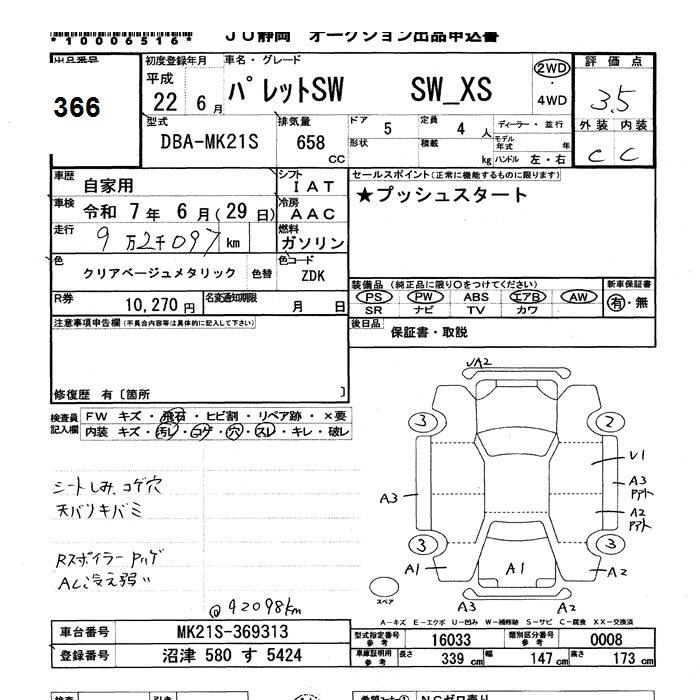 *10006516*
JU静岡 オークション出品申込書
出品番号
366
初度登録年月
平成
22年6月
車名・グレード
パレットSW SW_XS
2WD
・
4WD
評価点
3.5
外装 内装
C C
型式
DBA-MK21S
排気量
658
CC
ドア 5
形状
定員 4 人
積載 kg
ディーラー・並行
モデル年式 年
ハンドル 左・右
車歴
自家用
シフト
IAT
車検
令和 7年 6月(29日)
冷房
AAC
走行
9万2千097 km
燃料
ガソリン
色
クリアベージュメタリック 色替
色コード
ZDK
R券
10,270円
名変通知期限
月 日
セールスポイント(正常に機能するものに限ります)
★プッシュスタート
装備品(純正品に限り○をつけてください)
PS PW ABS エアB AW
SR ナビ TV カワ
新車保証書
有・無
後日品
保証書・取説
注意事項申告欄(不具合内容等は具体的に記入して下さい)
修復歴 有〔箇所 〕
検査員
記入欄
FW キズ・飛石・ヒビ割・リペア跡・×要
内装 キズ・汚レ・コゲ・穴・スレ・キレ・破レ
シートしみ、コゲ穴
天バリキバミ
Rスポイラー Pハゲ
AC冷え弱い
@92098km
A2
3
2
V1
A3
A3
Pアト
A2
Pアト
3
3
A1
A1
A2
A3
A2
スペア
A-キズ E-エクボ U-凹み W-補修跡 S-サビ C-腐食 XX-交換済
車台番号
MK21S-369313
登録番号
沼津 580 す 5424
型式指定番号
参考
16033
類別区分番号
参考
0008
車庫証明用
参考
長さ 339 cm
幅 147 cm
高さ 173 cm
検査
引き
希望コーナー①
NCゼロ売り